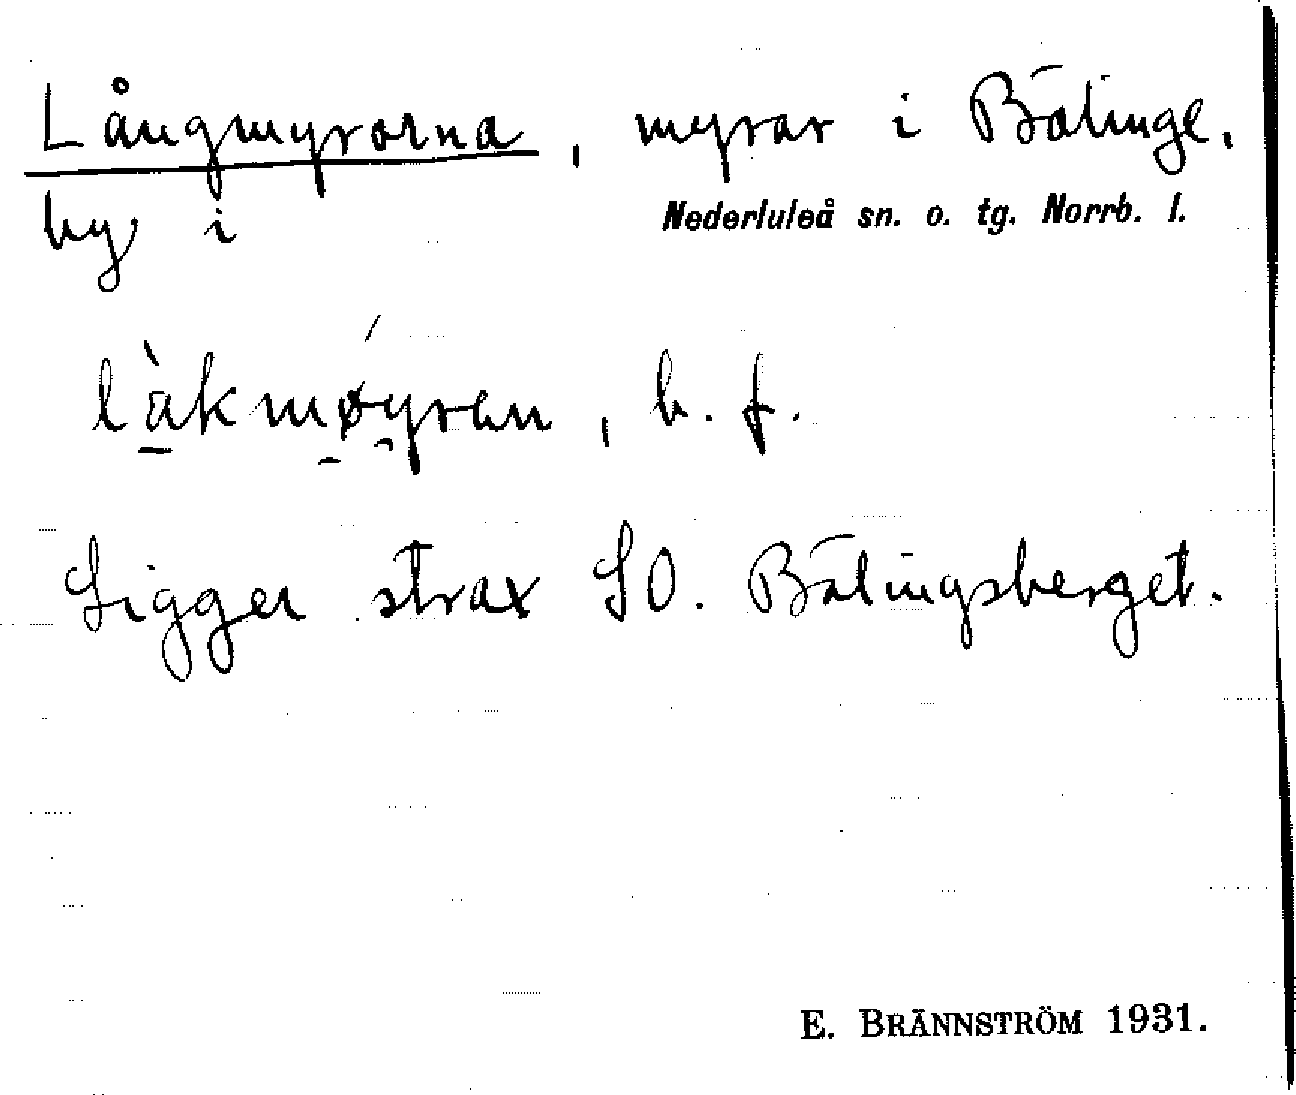 Långmyrorna, myrar i Bälinge,
by i Nederluleå sn. o. tg. Norrb. l.
làkmøyran, b. f.
Ligger strax SO. Bälingsberget.
E. BRÄNNSTRÖM 1931.